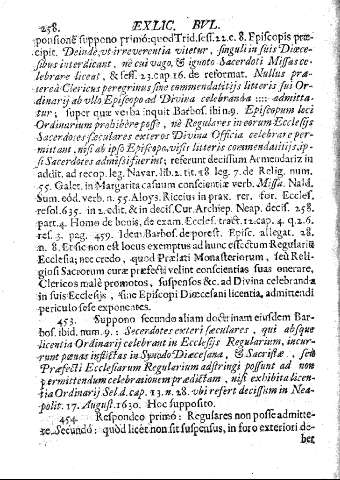 258. EXLIC. BVL.
ponsione suppono primò: quod Trid. sess. 22. c. 8. Episcopis præ-
cipit. Deinde, vt irreverentia vitetur, singuli in suis Diœce-
sibus interdicant, nè cui vago, & ignoto Sacerdoti Missas ce-
lebrare liceat, & sess. 23. cap 16. de reformat. Nullus præ-
tereà Clericus peregrinus sine commendatitijs litteris sui Or-
dinarij ab vllo Episcopo ad Divina celebranda :::: admitta-
tur, super quæ verba inquit Barbos. ibi n. 9. Episcopum loci
Ordinarium prohibere posse, nè Regulares in eorum Ecclesijs
Sacerdotes sæculares exteros Divina Officia celebrare per-
mittant, nisi ab ipso Episcopo, visis litteris commendatitijs, ip-
si Sacerdotes admissi fuerint; referent decissum Armendariz in
addit. ad recop. leg. Navar. lib. 2. tit. 18 leg. 7. de Relig. num.
55. Galet. in Margarita casuum conscientiæ verb. Missa. Nald.
Sum. eód. verb. n. 55. Aloys. Riccius in prax. rer. for. Eccles.
resol. 635. in 2. edit. & in decis. Cur. Archiep. Neap. decis. 258.
part. 4. Home de bonis, de exam. Eccles. tract. 12. cap. 4. q. 2. 6.
res. 3. pag. 459. Idem Barbos. de potest. Episc. allegat. 28.
n. 8. Et sic non est locus exemptus ad hunc effectum Regularium
Ecclesia; nec credo, quod Prælati Monasteriorum, seù Reli-
giosi Sacrorum curæ præfecti velint conscientias suas onerare,
Clericos malè promotos, suspensos &c. ad Divina celebranda
in suis Ecclesijs, sine Episcopi Diœcesani licentia, admittendi
periculo sese exponentes.
453. Suppono secundò aliam doctrinam eiusdem Bar-
bos. ibid. num. 9.: Sacerdotes exteri sæculares, qui absque
licentia Ordinarij celebrant in Ecclesijs Regularium, incur-
runt pœnas inflictas in Synodo Diœcesana, & Sacristæ, seù
Præfecti Ecclesiarum Regularium adstringi possunt ad non
permittendum celebrationem prædictam, nisi exhibita licen-
tia Ordinarij Sel. d. cap. 13. n. 28. vbi refert decissum in Nea-
polit. 17. August. 1630. Hoc supposito.
454. Respondeo primò: Regulares non posse admitte-
re. Secundò: quòd licèt non sit suspensus, in foro exteriori de-
bet